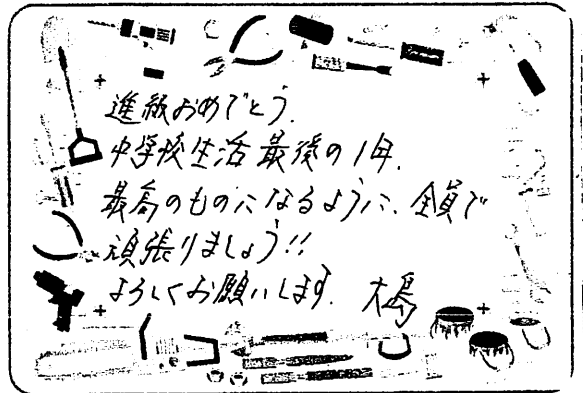 進級おめでとう.
中学校生活最後の1年.
最高のものになるように、全員で
頑張りましょう!!
よろしくお願いします. 大島